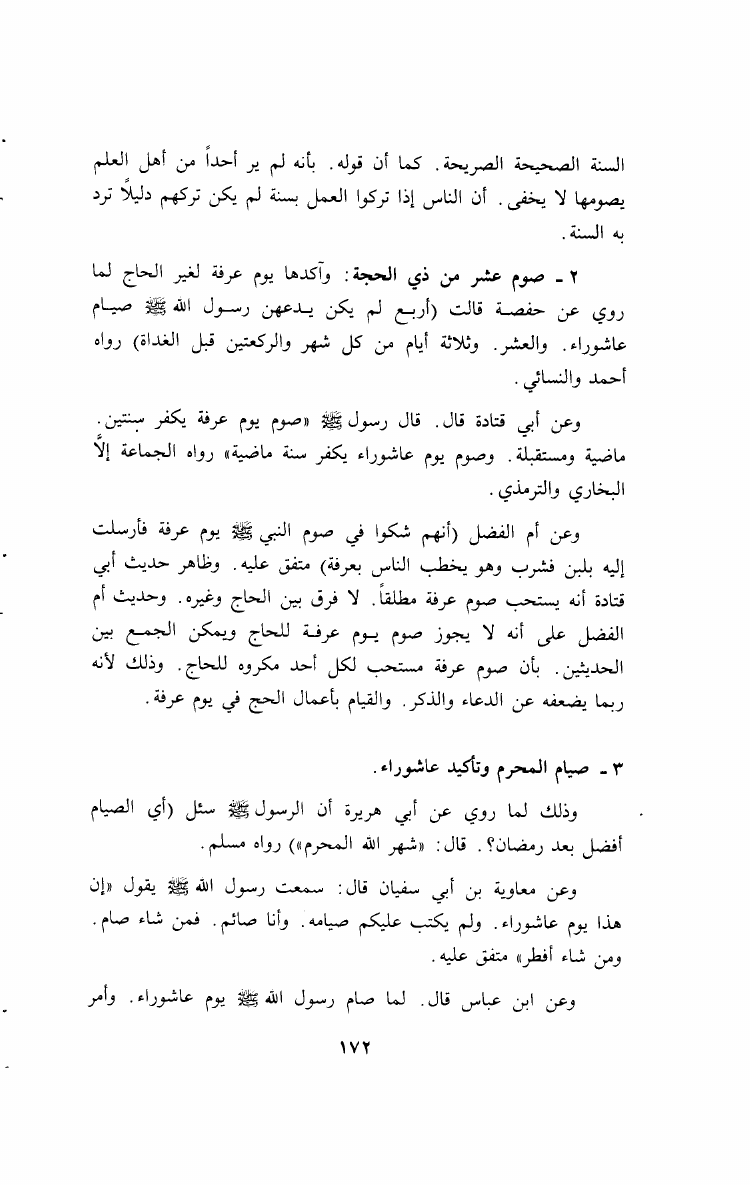 السنة الصحيحة الصريحة. كما أن قوله. بأنه لم ير أحداً من أهل العلم
يصومها لا يخفى. أن الناس إذا تركوا العمل بسنة لم يكن تركهم دليلاً ترد
به السنة.
٢ ـ صوم عشر من ذي الحجة: وآكدها يوم عرفة لغير الحاج لما
روي عن حفصة قالت (أربع لم يكن يدعهن رسول الله ﷺ صيام
عاشوراء. والعشر. وثلاثة أيام من كل شهر والركعتين قبل الغداة) رواه
أحمد والنسائي.
وعن أبي قتادة قال. قال رسول ﷺ «صوم يوم عرفة يكفر سنتين.
ماضية ومستقبلة. وصوم يوم عاشوراء يكفر سنة ماضية» رواه الجماعة إلاَّ
البخاري والترمذي.
وعن أم الفضل (أنهم شكوا في صوم النبي ﷺ يوم عرفة فأرسلت
إليه بلبن فشرب وهو يخطب الناس بعرفة) متفق عليه. وظاهر حديث أبي
قتادة أنه يستحب صوم عرفة مطلقاً. لا فرق بين الحاج وغيره. وحديث أم
الفضل على أنه لا يجوز صوم يوم عرفة للحاج ويمكن الجمع بين
الحديثين. بأن صوم عرفة مستحب لكل أحد مكروه للحاج. وذلك لأنه
ربما يضعفه عن الدعاء والذكر. والقيام بأعمال الحج في يوم عرفة.
٣ ـ صيام المحرم وتأكيد عاشوراء.
وذلك لما روي عن أبي هريرة أن الرسول ﷺ سئل (أي الصيام
أفضل بعد رمضان؟. قال: «شهر الله المحرم») رواه مسلم.
وعن معاوية بن أبي سفيان قال: سمعت رسول الله ﷺ يقول «إن
هذا يوم عاشوراء. ولم يكتب عليكم صيامه. وأنا صائم. فمن شاء صام.
ومن شاء أفطر» متفق عليه.
وعن ابن عباس قال. لما صام رسول الله ﷺ يوم عاشوراء. وأمر
١٧٢